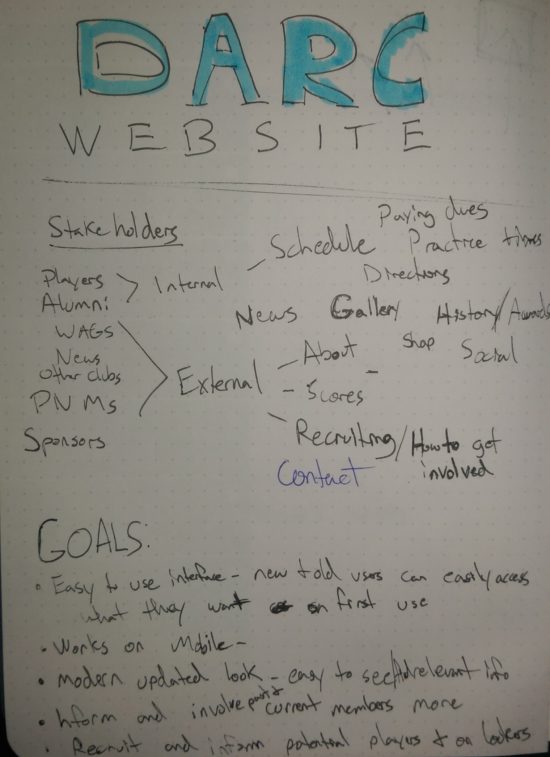 DARC
WEBSITE
Stakeholders
Players
Alumni
Internal
WAGS
News
Other clubs
PNMs
External
Sponsors
Schedule
Paying dues
Practice times
Directions
News
Gallery
History/Awards
About
Shop
Social
Scores
Recruiting/How to get
involved
Contact
GOALS:
• Easy to use interface - new + old users can easily access
what they want on first use
• Works on Mobile -
• Modern updated look - easy to see relevant info
• Inform and involve past + current members more
• Recruit and inform potential players + on lookers